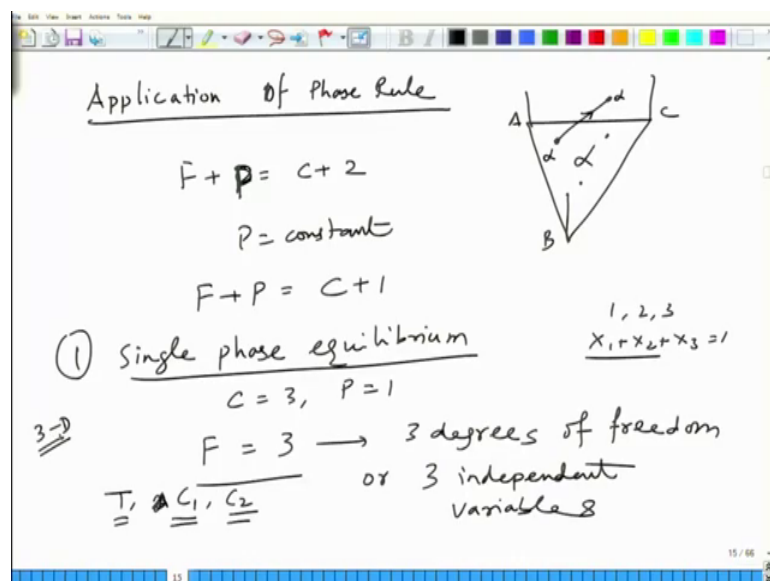 File Edit View Insert Actions Tools Help
B I
Application Of Phase Rule
F + P = C + 2
P = constant
F + P = C + 1
A C
α
α
α
B
① Single phase equilibrium
1, 2, 3
x1 + x2 + x3 = 1
C = 3, P = 1
3-D
F = 3 → 3 degrees of freedom
or 3 independent
variables
T, C1, C2
15 / 66
15